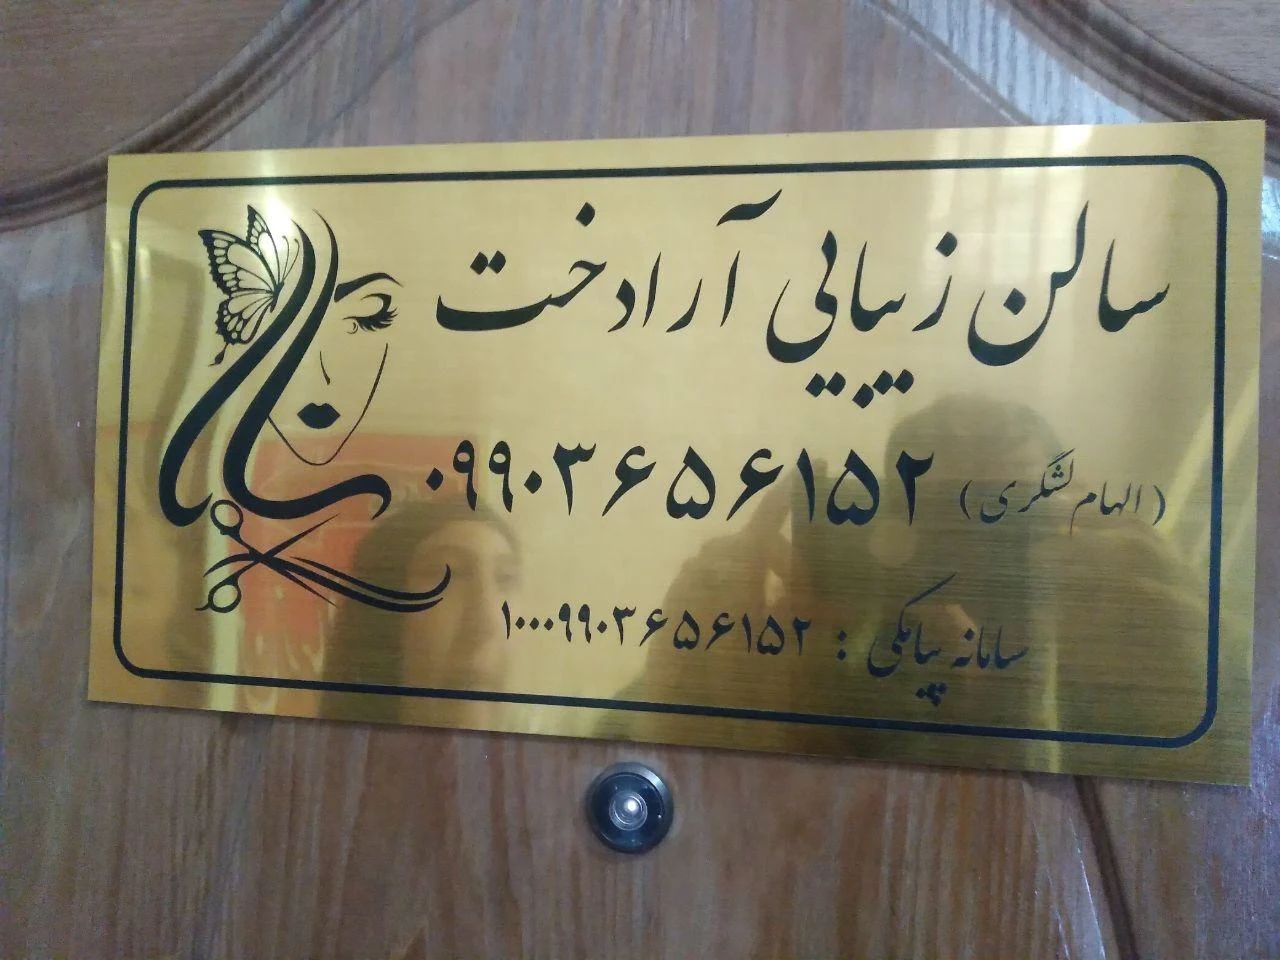 سالن زیبایی آرادخت
(الهام لشگری) ۰۹۹۰۳۶۵۶۱۵۲
سامانه پیامکی : ۱۰۰۰۹۹۰۳۶۵۶۱۵۲